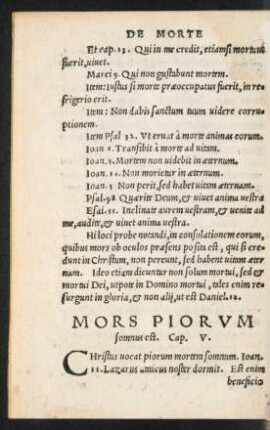 DE MORTE
Et cap. 13. Qui in me credit, etiamsi mortuus
fuerit, uiuet.
Marci 9. Qui non gustabunt mortem.
Item: Iustus si morte præoccupatus fuerit, in re-
frigerio erit.
Item: Non dabis sanctum tuum uidere corru-
ptionem.
Item Psal. 32. Vt eruat à morte animas eorum.
Ioan 5. Transibit à morte ad uitam.
Ioan. 5. Mortem non uidebit in æternum.
Ioan. 11. Non morietur in æternum.
Ioan. 3 Non perit, sed habet uitam æternam.
Psal. 68 Quærite Deum, & uiuet anima uestra
Esai. 55. Inclinate aurem uestram, & uenite ad
me, audite, & uiuet anima uestra.
Hi loci probe notandi, in consolationem eorum,
quibus mors ob oculos præsens posita est, qui si cre-
dunt in Christum, non pereunt, sed habent uitam æter
nam. Ideo etiam dicuntur non solum mortui, sed &
mortui Dei, uitæque in Domino mortui, tales enim re-
surgunt in gloria, & non alij, ut est Daniel. 12.
MORS PIORVM
somnus est. Cap. V.
CHristus uocat piorum mortem somnum. Ioan.
11. Lazarus amicus noster dormit. Est enim
beneficio